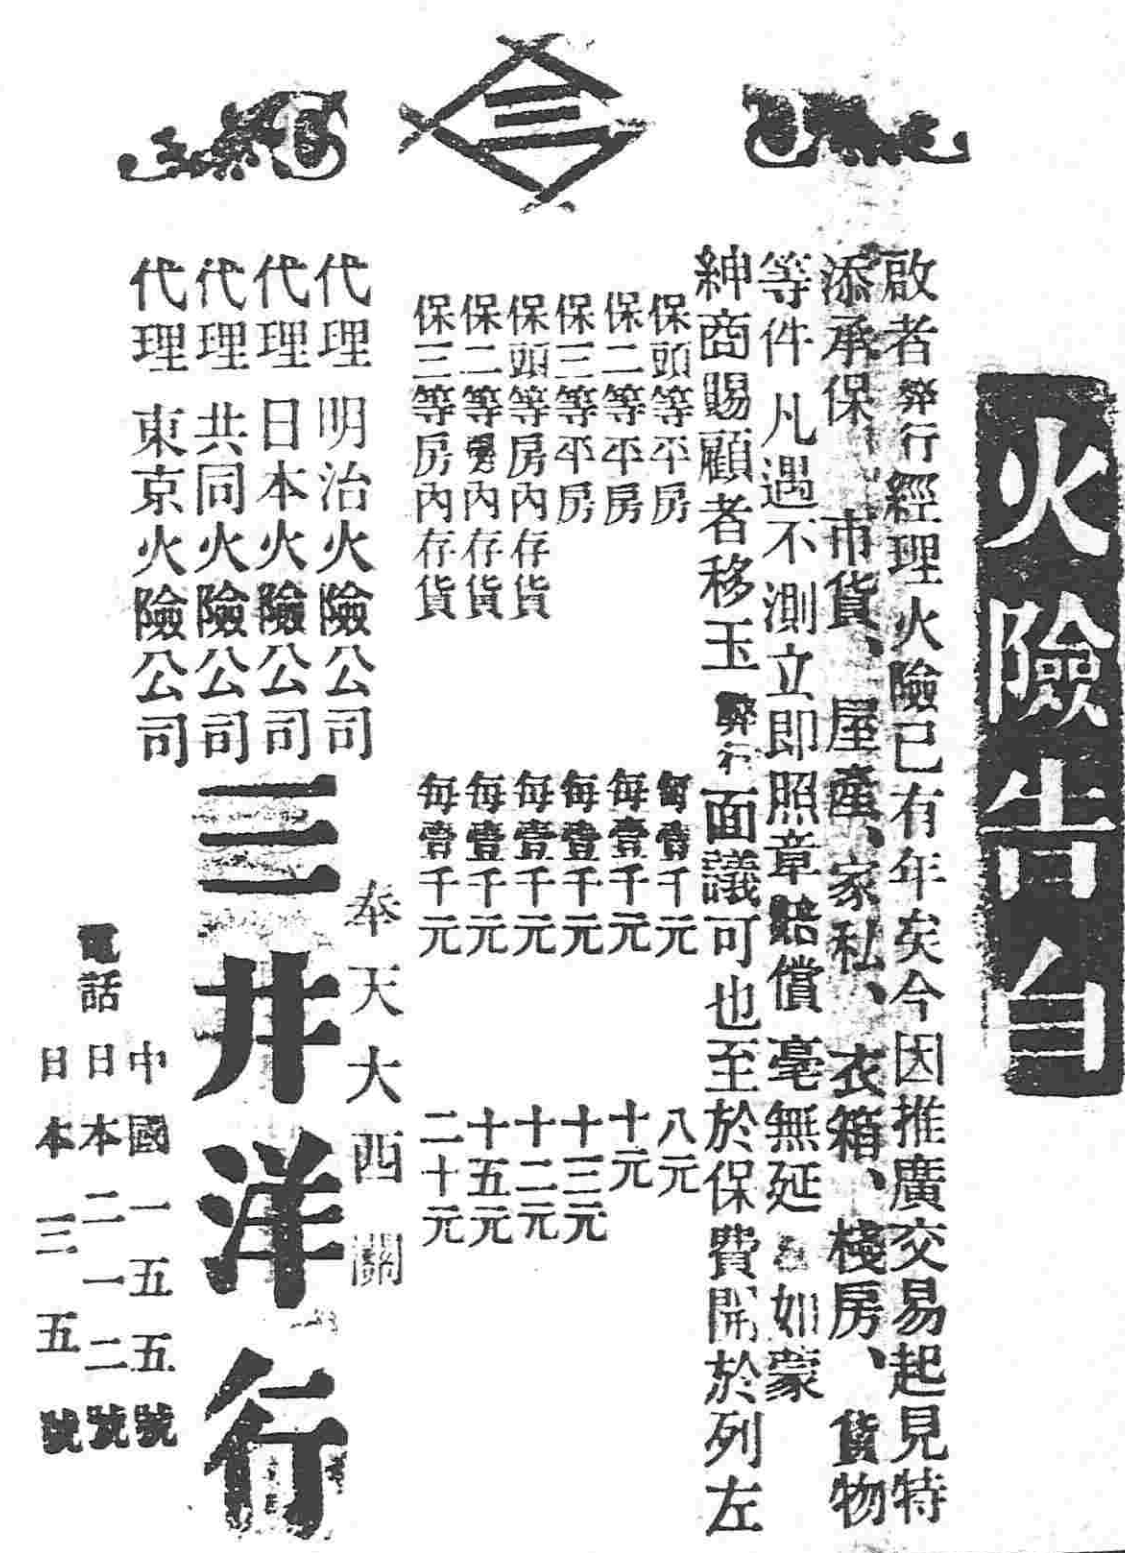 三
火險告白
啟者弊行經理火險已有年矣今因推廣交易起見特
添承保市貨、屋產、家私、衣箱、棧房、貨物
等件凡遇不測立即照章賠償毫無延如蒙
紳商賜顧者移玉弊行面議可也至於保費開於列左
保頭等平房 每壹千元 八元
保二等平房 每壹千元 十元
保三等平房 每壹千元 十三元
保頭等房內存貨 每壹千元 十二元
保二等房內存貨 每壹千元 十五元
保三等房內存貨 每壹千元 二十元
奉天大西關
代理 明治火險公司
代理 日本火險公司
代理 共同火險公司
代理 東京火險公司
三井洋行
電話
中國一五五號
日本二一二號
日本三五號